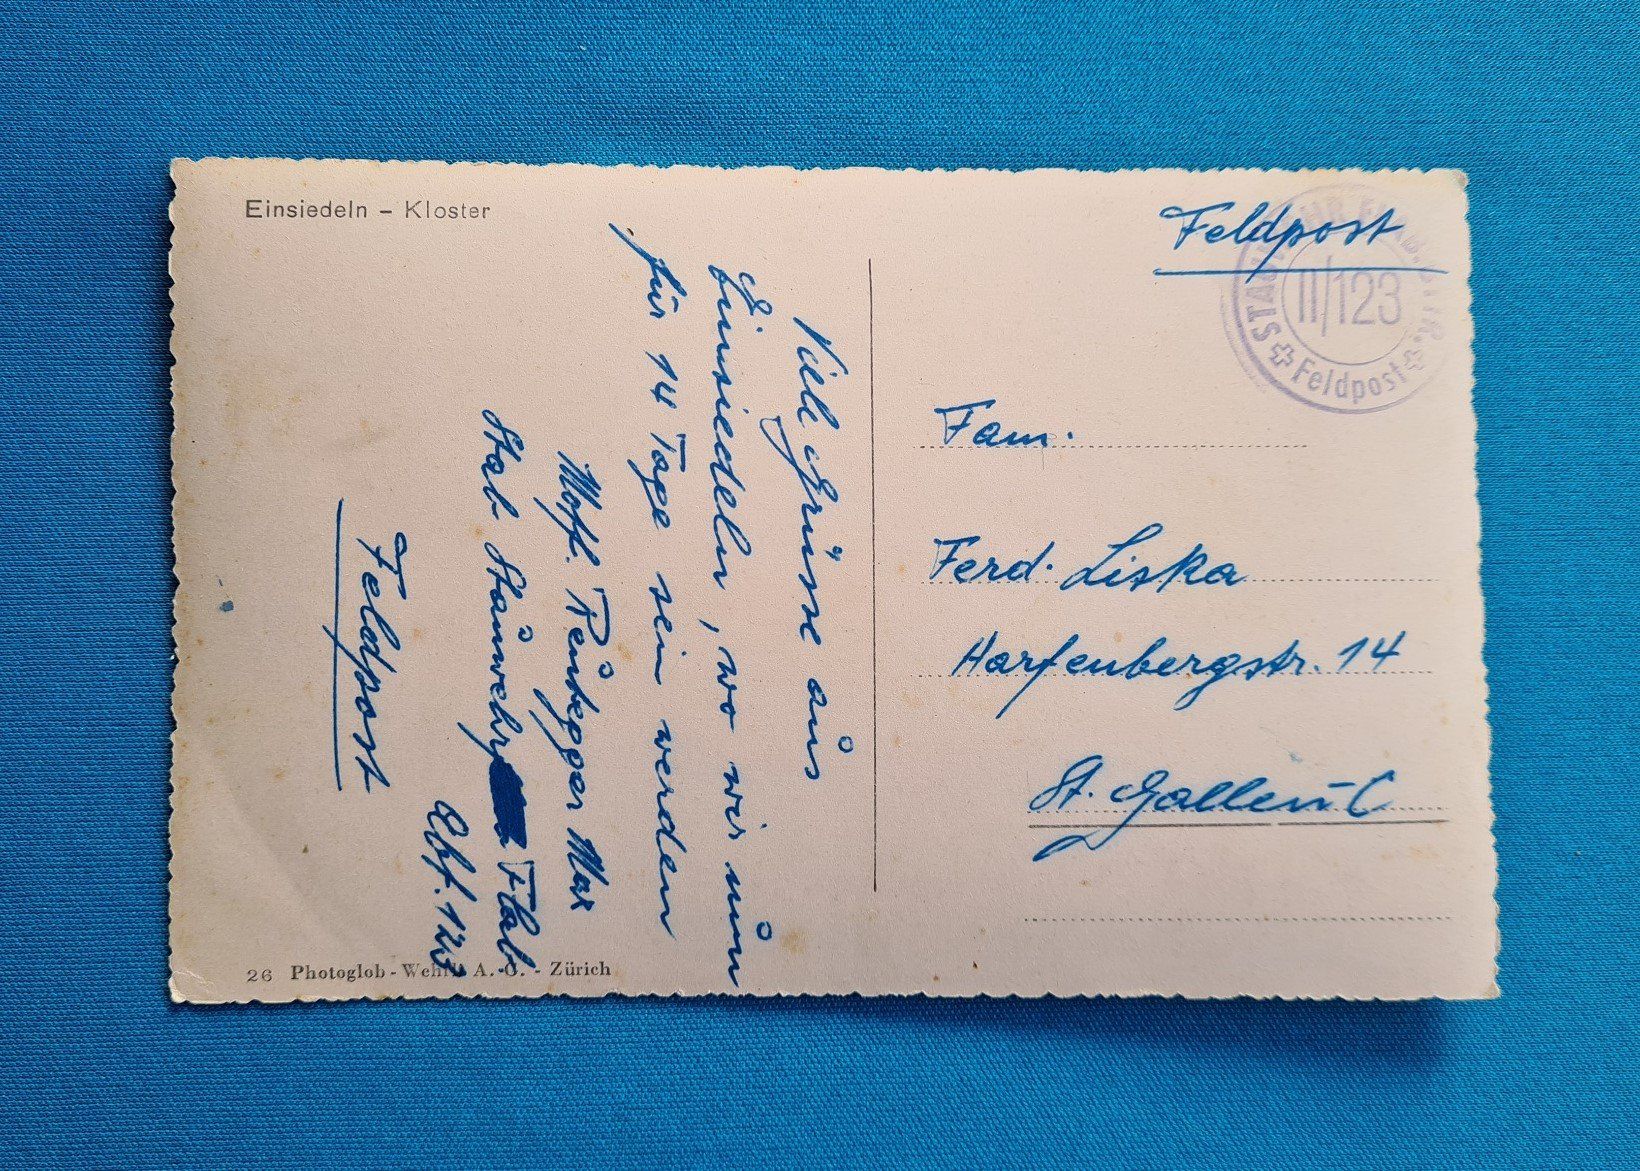 Einsiedeln – Kloster
Viele Grüsse aus
Einsiedeln, wo wir nun
für 14 Tage sein werden
Max
Stab Stauwehr Flab
123
Feldpost
26 Photoglob - Wehrli A.-G. - Zürich
Feldpost
II/123
Feldpost
Fam.
Ferd. Liska
Harfenbergstr. 14
St. Gallen-C